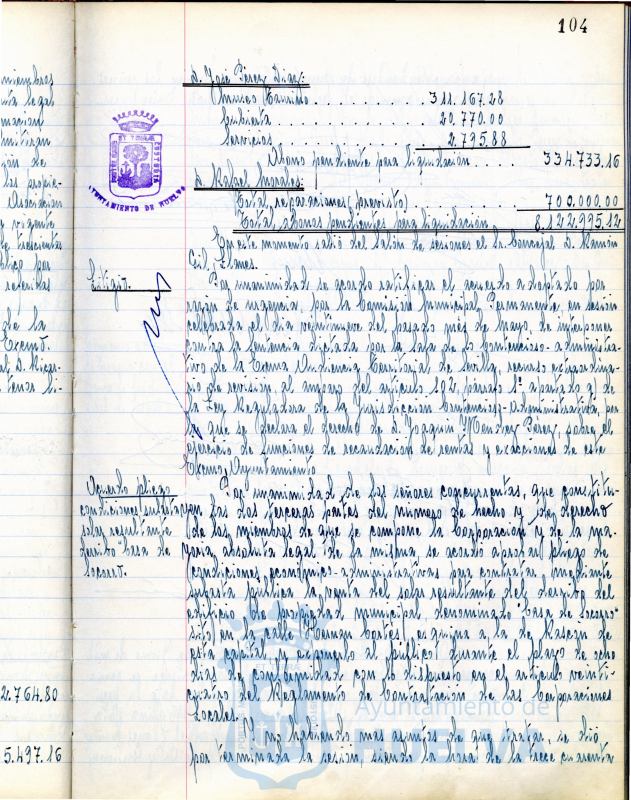 104
D. José Pérez Díaz:
311.167.28
Cubierta 20.770.00
Servicios 2.795.88
Abono pendiente para liquidación 334.733.16
D. Rafael Morales:
Total reparaciones (previsto) 700.000.00
Total abonos pendientes para liquidación 8.122.995.12
En este momento salió del Salón de sesiones el Sr. Concejal D. Ramón
Gil, Llanes.
Litigio.
Por unanimidad se acordó ratificar el acuerdo adoptado por
razón de urgencia, por la Comisión Municipal Permanente, en sesión
celebrada el día veintinueve del pasado mes de Mayo, de interponer
contra la sentencia dictada por la sala de lo Contencioso-administra-
tivo de la Excma Audiencia Territorial de Sevilla, recurso extraordina-
rio de revisión, al amparo del artículo 102, párrafo 1º apartado a) de
la Ley Reguladora de la Jurisdicción Contencioso-Administrativa, por
lo que se declara el derecho de D. Joaquín Pérez, sobre el
ejercicio de funciones de recaudación de rentas y exacciones de este
Excmo. Ayuntamiento
Acuerdo pliego
condiciones subasta
solar resultante
derribo casa de
Socorro.
Por unanimidad de los señores concurrentes, que constitu-
yen las dos terceras partes del número de hecho y de derecho
de los miembros de que se compone la Corporación y de la ma-
yoría absoluta legal de la misma, se acordó aprobar pliego de
condiciones económico-administrativas para contratar mediante
subasta pública la venta del solar resultante del derribo del
edificio de propiedad municipal denominado "Casa de Socorro"
sito en la calle Hernán Cortés, esquina a la de Rascón de
esta capital y exponerlo al público durante el plazo de ocho
días de conformidad con lo dispuesto en el artículo veinti-
cuatro del Reglamento de Contratación de las Corporaciones
Locales.
Y no habiendo mas asuntos de que tratar, se dió
por terminada la sesión, siendo la hora de las trece cuarenta
AYUNTAMIENTO DE HUELVA
Ayuntamiento de
HUELVA
miembros
legal
de la
Excmo.
2.764.80
5.497.16